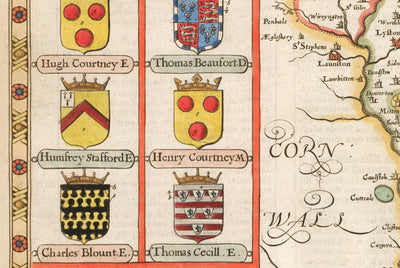 Hugh Courtney E
Thomas Beaufort.D
Humfrey Stafford E
Henry Courtney.M
Charles Blount.E.
Thomas Cecill .E.
Penhale
Wirryngton
St Giles
Lyfton
Ægleskery
St Stephens
Launston
Lawhitten
CORN
WALL
Caulstok
Cutteale